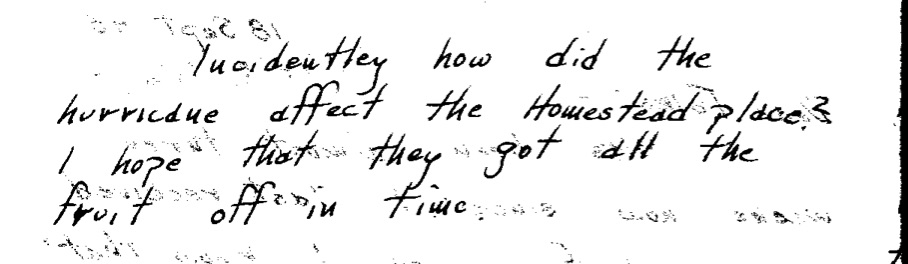 Incidentley how did the
hurricane affect the Homestead place?
I hope that they got all the
fruit off in time